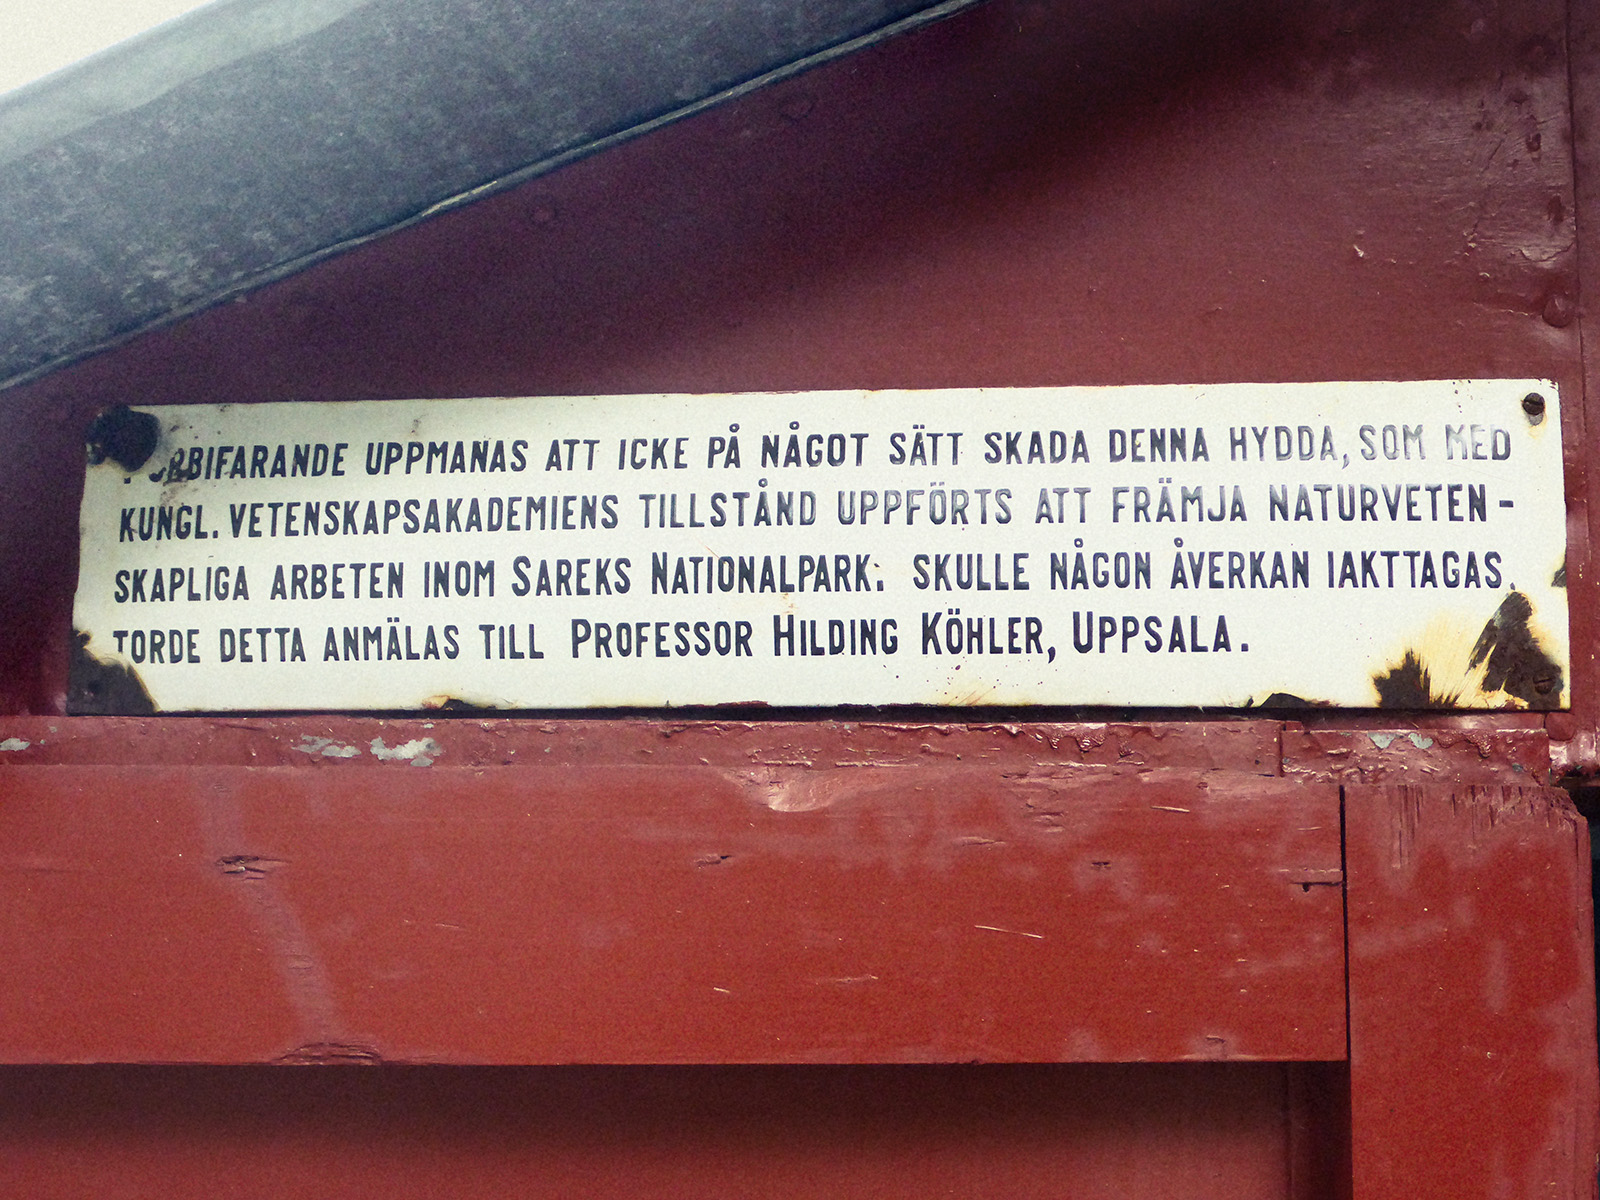 FÖRBIFARANDE UPPMANAS ATT ICKE PÅ NÅGOT SÄTT SKADA DENNA HYDDA, SOM MED
KUNGL. VETENSKAPSAKADEMIENS TILLSTÅND UPPFÖRTS ATT FRÄMJA NATURVETEN-
SKAPLIGA ARBETEN INOM SAREKS NATIONALPARK. SKULLE NÅGON ÅVERKAN IAKTTAGAS,
TORDE DETTA ANMÄLAS TILL PROFESSOR HILDING KÖHLER, UPPSALA.